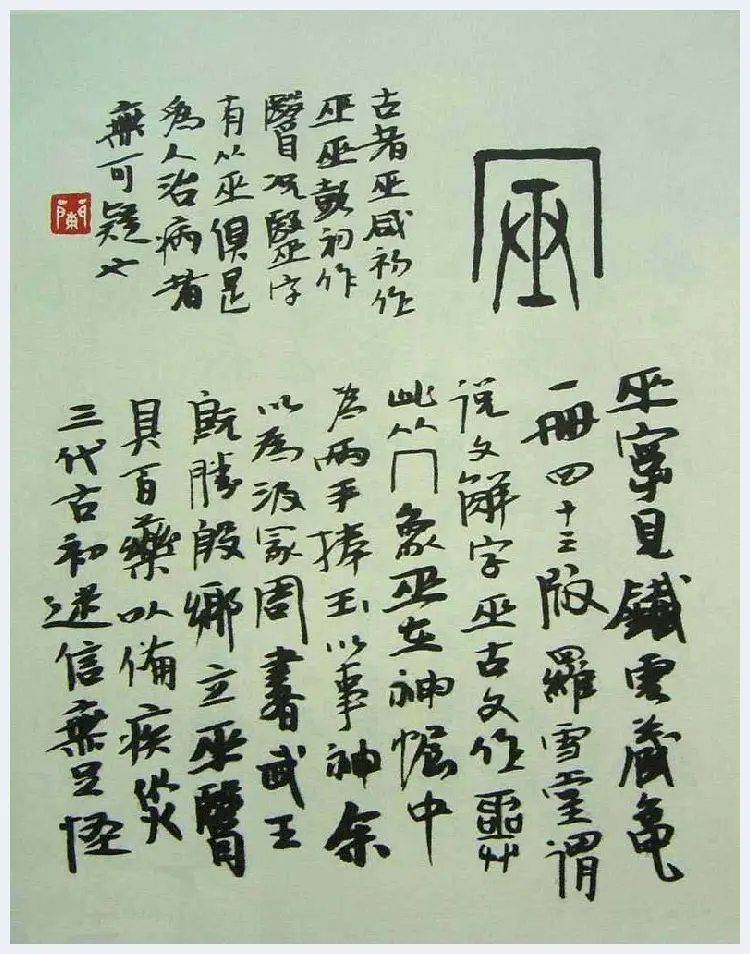 巫字見鐵雲藏龜
一冊四十三版羅雪堂謂
說文解字巫古文作
此从冂象巫在神幄中
為兩手捧玉以事神余
以為汲冢周書武王
既勝殷鄉立巫醫
具百藥以備疾災
三代古初迷信無足怪
古者巫咸初作
巫巫彭初作
醫況毉字
有从巫俱是
為人治病者
無可疑也